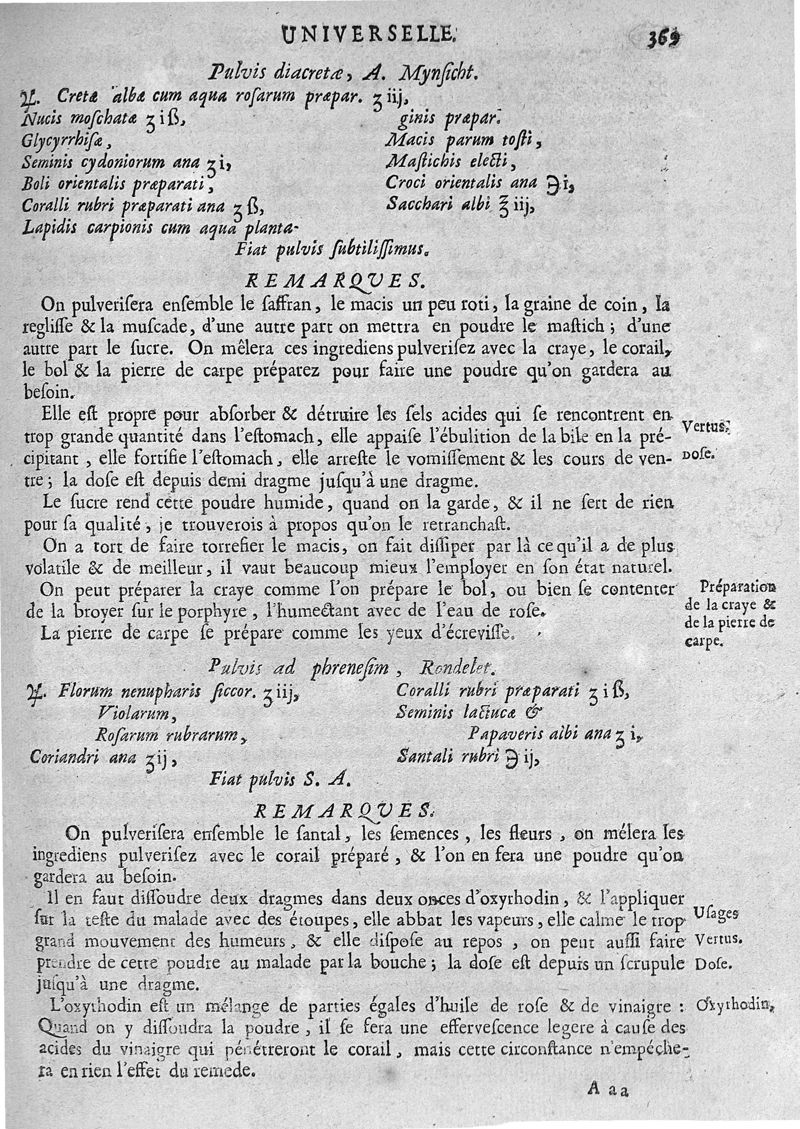 UNIVERSELLE. 369
Pulvis diacretæ, A. Mynſicht.
♃. Cretæ albæ cum aqua roſarum præpar. ʒ iij,
Nucis moſchatæ ʒ i ß,
Glycyrrhiſæ,
Seminis cydoniorum ana ʒ i,
Boli orientalis præparati,
Coralli rubri præparati ana ʒ ß,
Lapidis carpionis cum aqua planta-
ginis præpar.
Macis parum toſti,
Maſtichis electi,
Croci orientalis ana ℈ i,
Sacchari albi ℥ iij,
Fiat pulvis ſubtiliſſimus.
REMARQUES.
On pulveriſera enſemble le ſaffran, le macis un peu roti, la graine de coin, la
regliſſe & la muſcade, d'une autre part on mettra en poudre le maſtich; d'une
autre part le ſucre. On mêlera ces ingrediens pulveriſez avec la craye, le corail,
le bol & la pierre de carpe préparez pour faire une poudre qu'on gardera au
beſoin.
Elle eſt propre pour abſorber & détruire les ſels acides qui ſe rencontrent en
trop grande quantité dans l'eſtomach, elle appaiſe l'ébulition de la bile en la pré-
cipitant, elle fortifie l'eſtomach, elle arreſte le vomiſſement & les cours de ven-
tre; la doſe eſt depuis demi dragme juſqu'à une dragme.
Vertus.
Doſe.
Le ſucre rend cette poudre humide, quand on la garde, & il ne ſert de rien
pour ſa qualité, je trouverois à propos qu'on le retranchaſt.
On a tort de faire torrefier le macis, on fait diſſiper par là ce qu'il a de plus
volatile & de meilleur, il vaut beaucoup mieux l'employer en ſon état naturel.
On peut préparer la craye comme l'on prépare le bol, ou bien ſe contenter
de la broyer ſur le porphyre, l'humectant avec de l'eau de roſe.
La pierre de carpe ſe prépare comme les yeux d'écreviſſe.
Préparation
de la craye &
de la pierre de
carpe.
Pulvis ad phreneſim, Rondelet.
♃. Florum nenupharis ſiccor. ʒ iij,
Violarum,
Roſarum rubrarum,
Coriandri ana ʒ ij,
Coralli rubri præparati ʒ i ß,
Seminis lactucæ &
Papaveris albi ana ʒ i,
Santali rubri ℈ ij,
Fiat pulvis S. A.
REMARQUES.
On pulveriſera enſemble le ſantal, les ſemences, les fleurs, on mélera les
ingrediens pulveriſez avec le corail préparé, & l'on en fera une poudre qu'on
gardera au beſoin.
Il en faut diſſoudre deux dragmes dans deux onces d'oxyrhodin, & l'appliquer
ſur la teſte du malade avec des étoupes, elle abbat les vapeurs, elle calme le trop
grand mouvement des humeurs, & elle diſpoſe au repos, on peut auſſi faire
prendre de cette poudre au malade par la bouche; la doſe eſt depuis un ſcrupule
juſqu'à une dragme.
Uſages
Vertus.
Doſe.
L'oxyrhodin eſt un mélange de parties égales d'huile de roſe & de vinaigre:
Quand on y diſſoudra la poudre, il ſe fera une efferveſcence legere à cauſe des
acides du vinaigre qui pénétreront le corail, mais cette circonſtance n'empéche-
ra en rien l'effet du remede.
Oxyrhodin,
A aa